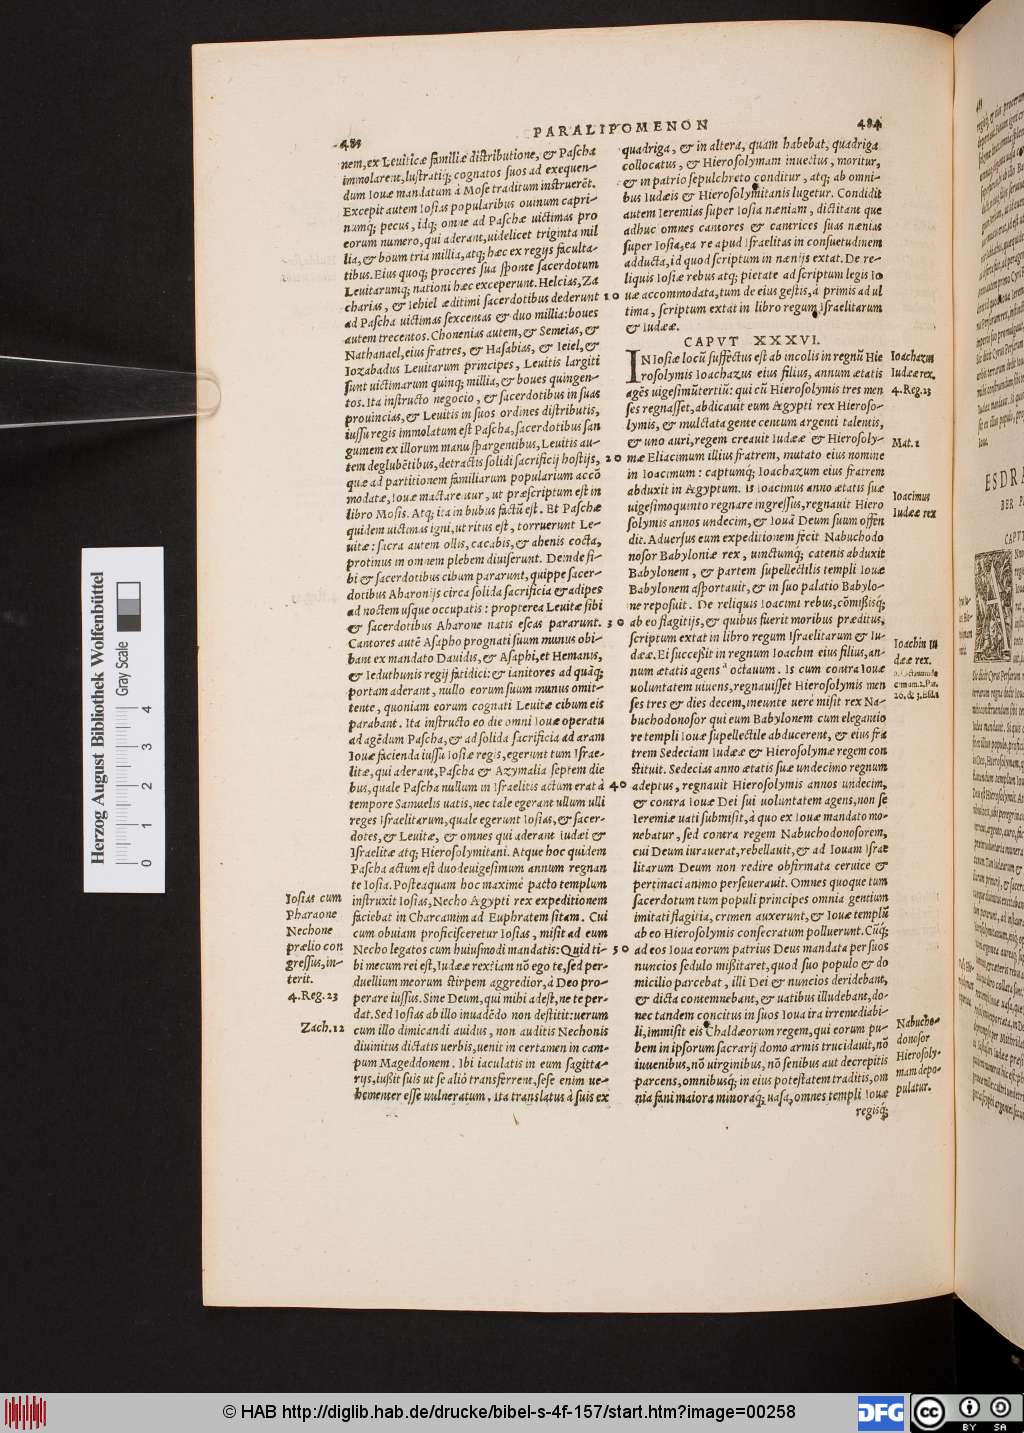 PARALIPOMENON
483
484
nem, ex Leuiticæ familiæ distributione, & Pascha
immolarent, lustratiq; cognatos suos ad exequen-
dum Iouæ mandatum à Mose traditum instruerēt.
Excepit autem Iosias popularibus ouinum capri-
numq; pecus, idq; omne ad Paschæ uictimas pro
eorum numero, qui aderant, uidelicet triginta mil
lia, & boum tria millia, atq; hæc ex regijs faculta-
tibus. Eius quoq; proceres sua sponte sacerdotum
Leuitarumq; nationi hæc exceperunt. Helcias, Za
charias, & Iehiel æditimi sacerdotibus dederunt
ad Pascha uictimas sexcentas & duo millia: boues
autem trecentos. Chonenias autem, & Semeias, &
Nathanael, eius fratres, & Hasabias, & Ieiel, &
Iozabadus Leuitarum principes, Leuitis largiti
sunt uictimarum quinq; millia, & boues quingen-
tos. Ita instructo negocio, & sacerdotibus in suas
prouincias, & Leuitis in suos ordines distributis,
iussu regis immolatum est Pascha, sacerdotibus san
guinem ex illorum manu spargentibus, Leuitis au-
tem deglubētibus, detractis solidi sacrificij hostijs,
quæ ad partitionem familiarum popularium accō
modatæ, Iouæ mactarentur, ut præscriptum est in
libro Mosis. Atq; ita in bubus factū est. Et Paschæ
quidem uictimas igni, ut ritus est, torruerunt Le-
uitæ: sacra autem ollis, cacabis, & ahenis cocta,
protinus in omnem plebem diuiserunt. Deinde si-
bi & sacerdotibus cibum pararunt, quippe sacer-
dotibus Aharonijs circa solida sacrificia & adipes
ad noctem usque occupatis: propterea Leuitæ sibi
& sacerdotibus Aharone natis escas pararunt.
Cantores autē Asapho prognati suum munus obi-
bant ex mandato Dauidis, & Asaphi, et Hemanis,
& Ieduthunis regij fatidici: et ianitores ad quāq;
portam aderant, nullo eorum suum munus omit-
tente, quoniam eorum cognati Leuitæ cibum eis
parabant. Ita instructo eo die omni Iouæ operatu
ad agēdum Pascha, & ad solida sacrificia ad aram
Iouæ facienda iussu Iosiæ regis, egerunt tum Israe-
litæ, qui aderant, Pascha & Azymalia septem die
bus, quale Pascha nullum in Israelitis actum erat à
tempore Samuelis uatis, nec tale egerant ullum ulli
reges Israelitarum, quale egerunt Iosias, & sacer-
dotes, & Leuitæ, & omnes qui aderant Iudæi &
Israelitæ atq; Hierosolymitani. Atque hoc quidem
Pascha actum est duodeuigesimum annum regnan
te Iosia. Posteaquam hoc maximè pacto templum
instruxit Iosias, Necho Ægypti rex expeditionem
faciebat in Charcamim ad Euphratem sitam. Cui
cum obuiam proficisceretur Iosias, misit ad eum
Necho legatos cum huiusmodi mandatis: Quid ti-
bi mecum rei est, Iudææ rex? iam nō ego te, sed per-
duellium meorum stirpem aggredior, à Deo pro-
perare iussus. Sine Deum, qui mihi adest, ne te per-
dat. Sed Iosias ab illo inuadēdo non destitit: uerum
cum illo dimicandi auidus, non auditis Nechonis
diuinitus dictatis uerbis, uenit in certamen in cam-
pum Mageddonem. Ibi iaculatis in eum sagitta-
rijs, iussit suis ut se aliò transferrent, sese enim ue-
hementer esse uulneratum. Ita translatus à suis ex
Iosias cum
Pharaone
Nechone
prælio con
gressus, in-
terit.
4. Reg. 23
Zach. 12
10
20
30
40
50
quadriga, & in altera, quam habebat, quadriga
collocatus, & Hierosolymam inuectus, moritur,
& in patrio sepulchreto conditur, atq; ab omni-
bus Iudæis & Hierosolymitanis lugetur. Condidit
autem Ieremias super Iosia næniam, dictitant que
adhuc omnes cantores & cantrices suas nænias
super Iosia, ea re apud Israelitas in consuetudinem
adducta, id quod scriptum in nænijs extat. De re-
liquis Iosiæ rebus atq; pietate ad scriptum legis Io
uæ accommodata, tum de eius gestis, à primis ad ul
tima, scriptum extat in libro regum Israelitarum
& Iudææ.
CAPVT XXXVI.
IN Iosiæ locū suffectus est ab incolis in regnū Hie
rosolymis Ioachazus eius filius, annum ætatis
agēs uigesimūtertiū: qui cū Hierosolymis tres men
ses regnasset, abdicauit eum Ægypti rex Hieroso-
lymis, & mulctata gente centum argenti talentis,
& uno auri, regem creauit Iudææ & Hierosoly-
mæ Eliacimum illius fratrem, mutato eius nomine
in Ioacimum: captumq; Ioachazum eius fratrem
abduxit in Ægyptum. Is Ioacimus anno ætatis suæ
uigesimoquinto regnare ingressus, regnauit Hiero
solymis annos undecim, & Iouā Deum suum offen
dit. Aduersus eum expeditionem fecit Nabuchodo
nosor Babyloniæ rex, uinctumq; catenis abduxit
Babylonem, & partem supellectilis templi Iouæ
Babylonem asportauit, & in suo palatio Babylo-
ne reposuit. De reliquis Ioacimi rebus, cōmissisq;
ab eo flagitijs, & quibus fuerit moribus præditus,
scriptum extat in libro regum Israelitarum & Iu-
dææ. Ei successit in regnum Ioachin eius filius, an-
num ætatis agens a octauum. Is cum contra Iouæ
uoluntatem uiuens, regnauisset Hierosolymis men
ses tres & dies decem, ineunte uere misit rex Na-
buchodonosor qui eum Babylonem cum elegantio
re templi Iouæ supellectile abducerent, & eius fra
trem Sedeciam Iudææ & Hierosolymæ regem con
stituit. Sedecias anno ætatis suæ undecimo regnum
adeptus, regnauit Hierosolymis annos undecim,
& contra Iouæ Dei sui uoluntatem agens, non se
Ieremiæ uati submisit, à quo ex Iouæ mandato mo-
nebatur, sed contra regem Nabuchodonosorem,
cui Deum iurauerat, rebellauit, & ad Iouam Israe
litarum Deum non redire obfirmata ceruice &
pertinaci animo perseuerauit. Omnes quoque tum
sacerdotum tum populi principes omnia gentium
imitati flagitia, crimen auxerunt, & Iouæ templū
ab eo Hierosolymis consecratum polluerunt. Cūq;
ad eos Ioua eorum patrius Deus mandata per suos
nuncios sedulo missitaret, quod suo populo & do
micilio parcebat, illi Dei & nuncios deridebant,
& dicta contemnebant, & uatibus illudebant, do-
nec tandem concitus in suos Ioua ira irremediabi-
li, immisit eis Chaldæorum regem, qui eorum pu-
bem in ipsorum sacrarij domo armis trucidauit, nō
iuuenibus, nō uirginibus, nō senibus aut decrepitis
parcens, omnibusq; in eius potestatem traditis, om
nia fani maiora minoraq; uasa, omnes templi Iouæ
regisq;
Ioachazus
Iudææ rex.
4. Reg. 23
Mat. 1
Ioacimus
Iudææ rex
Ioachin Iu
dææ rex.
Nabucho-
donosor
Hierosoly-
mam depo-
pulatur.
Herzog August Bibliothek Wolfenbüttel
Gray Scale
0 1 2 3 4
© HAB http://diglib.hab.de/drucke/bibel-s-4f-157/start.htm?image=00258
DFG
cc
BY SA